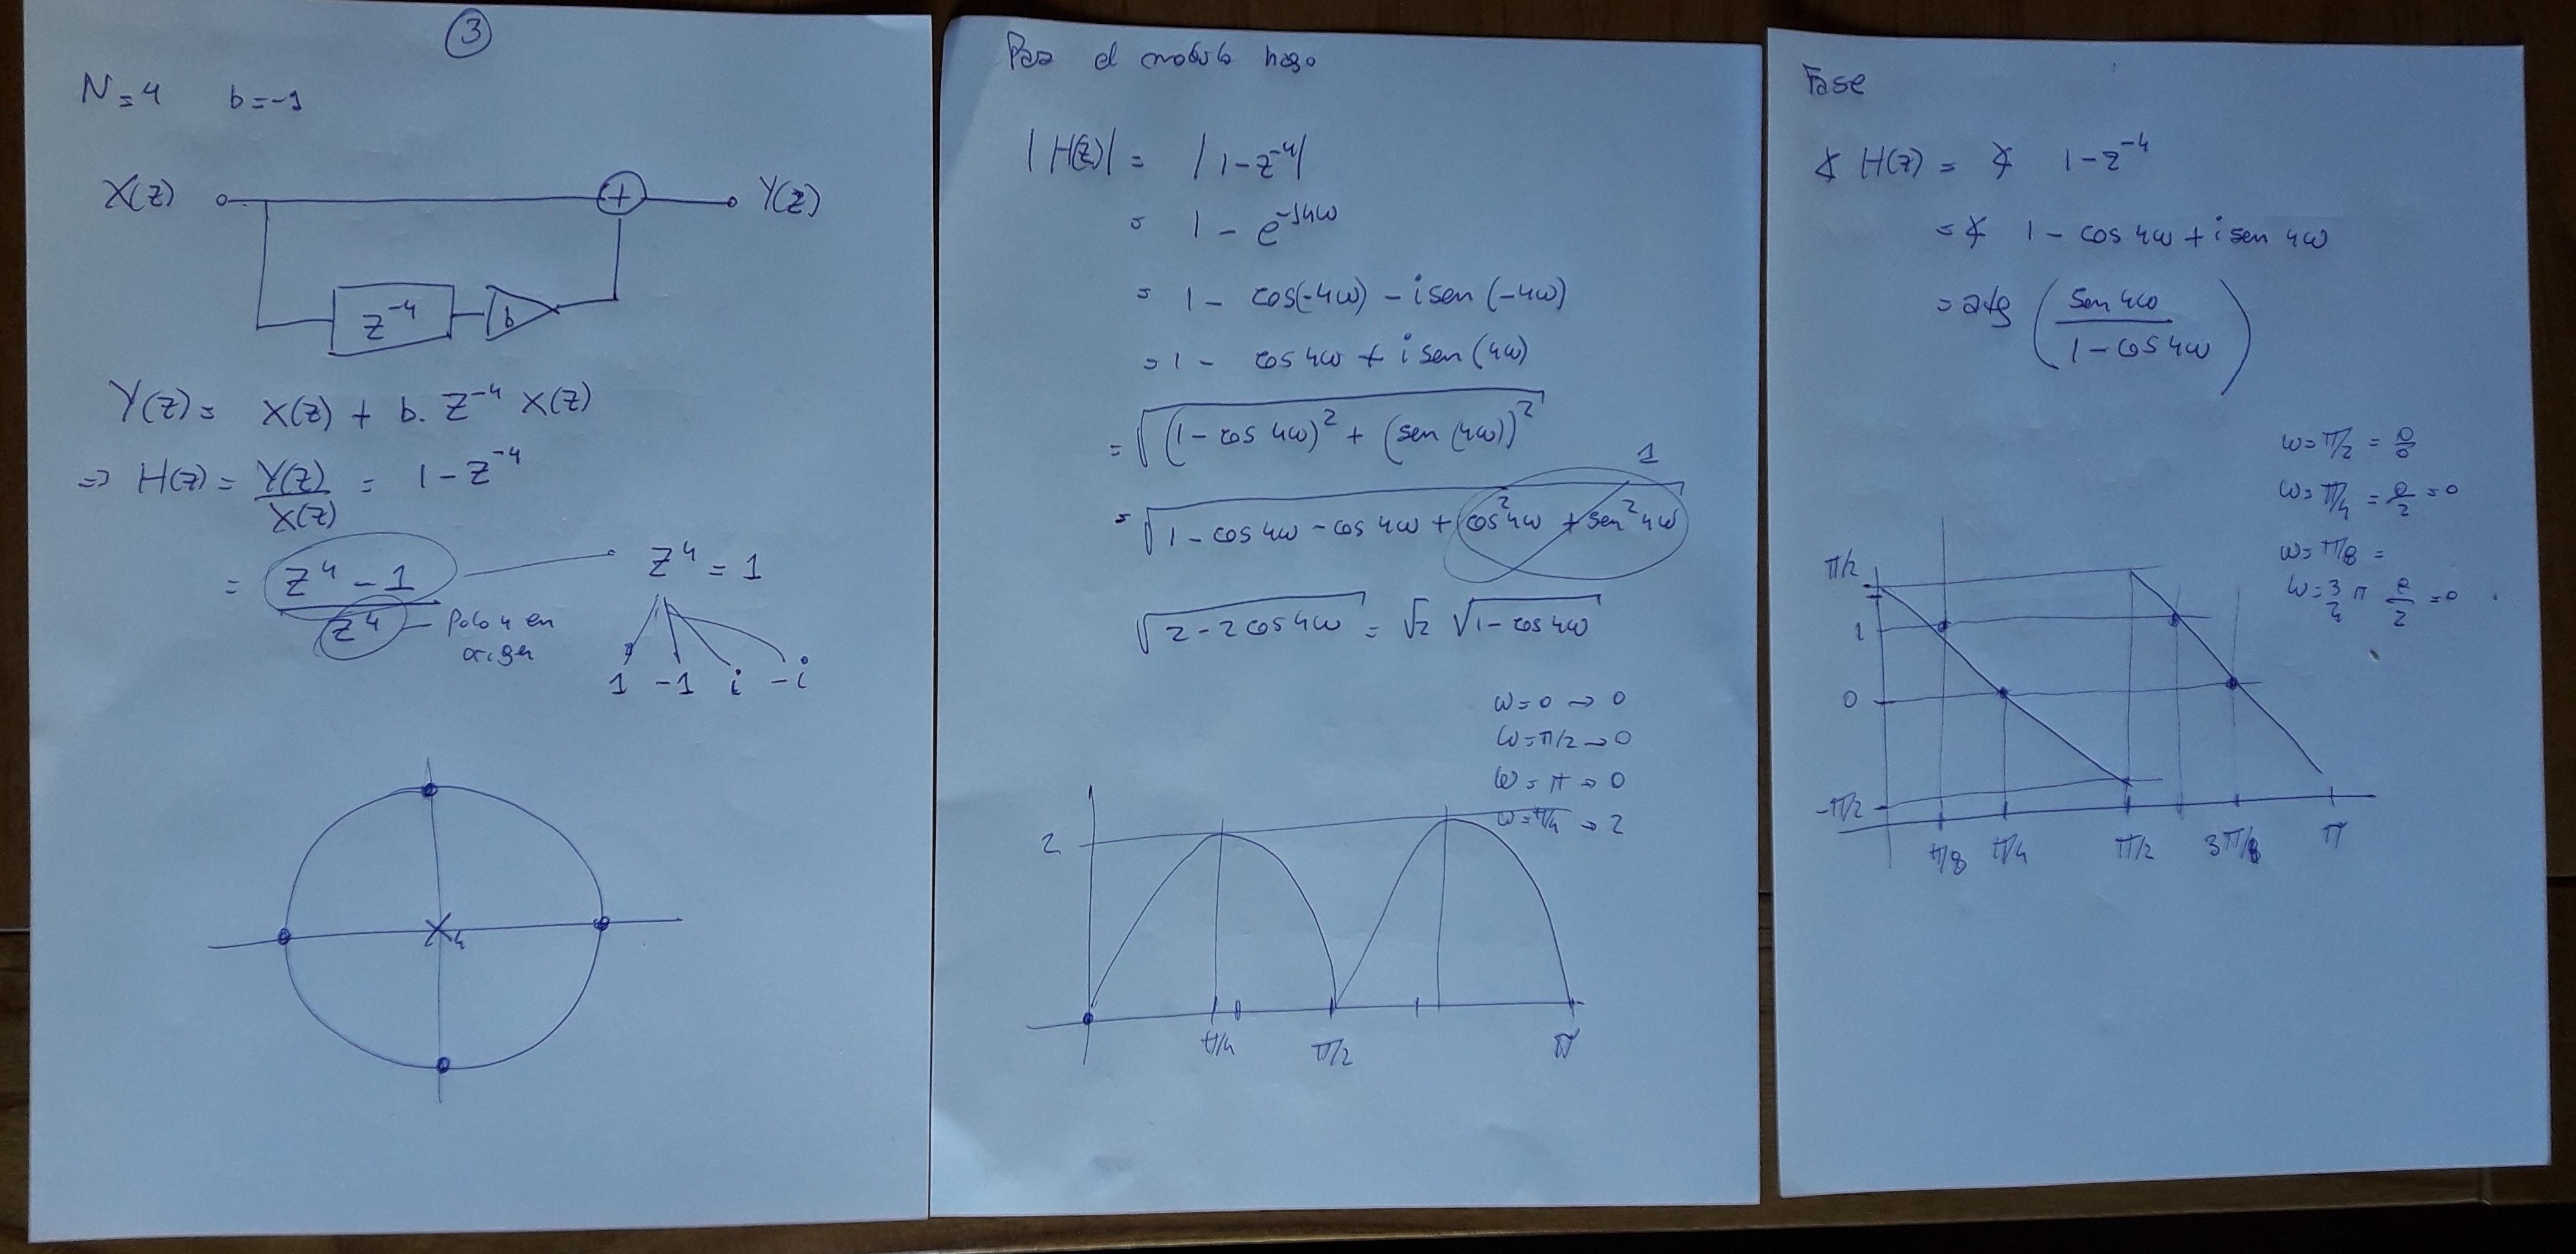 3
N=4 b=-1
X(z) + Y(z)
z⁻⁴ b
Y(z) = X(z) + b. z⁻⁴ X(z)
=> H(z) = Y(z)/X(z) = 1 - z⁻⁴
= (z⁴ - 1)/z⁴
z⁴ = 1
Polo 4 en
origen
1 -1 i -i
4
Para el modulo hago
|H(z)| = |1 - z⁻⁴|
= 1 - e^(-j4ω)
= 1 - cos(-4ω) - i sen(-4ω)
= 1 - cos 4ω + i sen(4ω)
= √((1 - cos 4ω)² + (sen(4ω))²)
1
= √(1 - cos 4ω - cos 4ω + cos² 4ω + sen² 4ω)
√(2 - 2cos 4ω) = √2 √(1 - cos 4ω)
ω=0 → 0
ω=π/2 → 0
ω=π → 0
ω=π/4 → 2
2
π/4 π/2 π
Fase
∡ H(z) = ∡ 1 - z⁻⁴
= ∡ 1 - cos 4ω + i sen 4ω
= atg (sen 4ω / (1 - cos 4ω))
ω=π/2 = 0/0
ω=π/4 = 0/2 = 0
ω=π/8 =
ω=3/4 π 0/2 = 0
π/2
1
0
-π/2
π/8 π/4 π/2 3π/ π